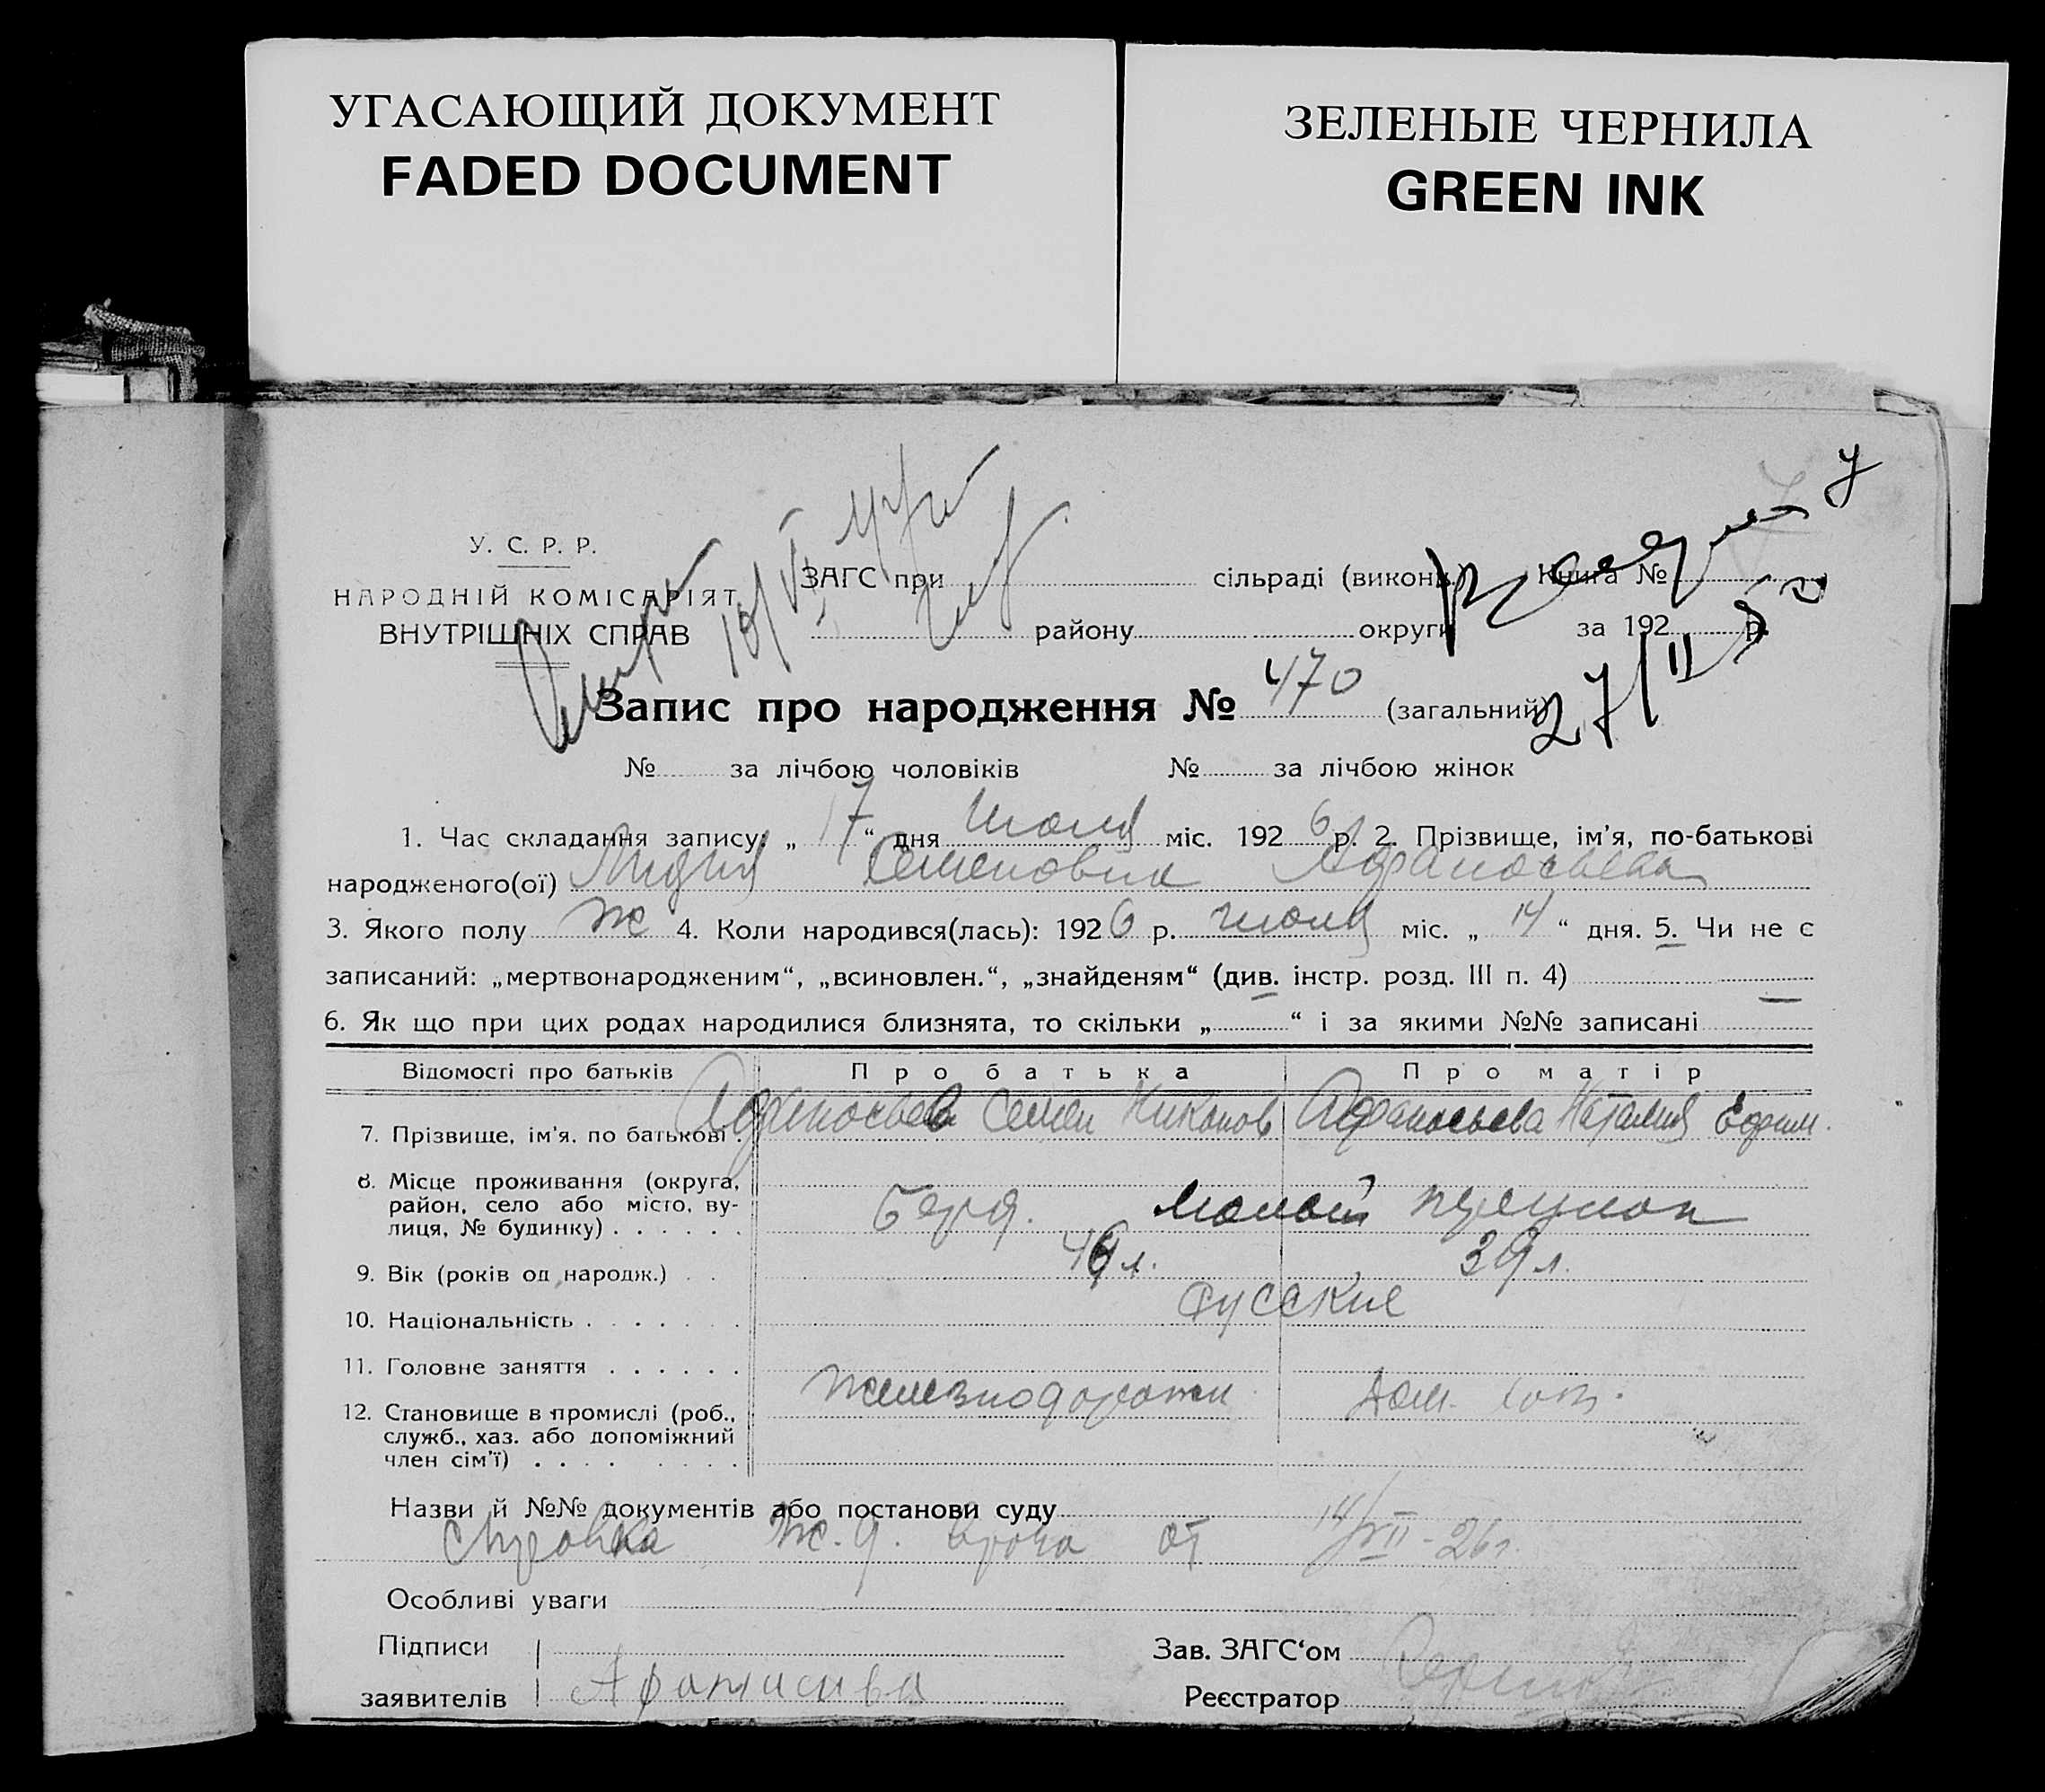 УГАСАЮЩИЙ ДОКУМЕНТ
FADED DOCUMENT
ЗЕЛЕНЫЕ ЧЕРНИЛА
GREEN INK
У. С. Р. Р.
НАРОДНІЙ КОМІСАРІЯТ
ВНУТРІШНІХ СПРАВ
ЗАГС при сільраді (викони.) Книга №
району округи за 192 р.
27/II
Запис про народження № 470 (загальний)
№ за лічбою чоловіків № за лічбою жінок
1. Час складання запису: „ 17 “ дня Июля міс. 192 6 р. 2. Прізвище, ім’я, по-батькові
народженого(ої) Лидия Семеновна Афанасьева
3. Якого полу Ж 4. Коли народився(лась): 192 6 р. июля міс. „ 14 “ дня. 5. Чи не є
записаний: „мертвонародженим“, „всиновлен.“, „знайденям“ (див. інстр. розд. III п. 4) —
6. Як що при цих родах народилися близнята, то скільки „ “ і за якими №№ записані
Відомості про батьків Про батька Про матір
7. Прізвище, ім’я, по батькові . Афанасьев Семен Никонов Афанасьева Наталия Ефрим.
8. Місце проживання (округа,
район, село або місто, ву-
лиця, № будинку) . . . . . . Малый переулок
9. Вік (років од народж.) . . 39 л.
10. Національність . . . . . . . русские
11. Головне заняття . . . . . .
железнодорожн. Дом. хоз.
12. Становище в промислі (роб.,
служб., хаз. або допоміжний
член сім’ї) . . . . . . . . .
Назви й №№ документів або постанови суду
справка Ж. д. врача от 14/VII-26г.
Особливі уваги
Підписи Зав. ЗАГС‘ом
заявителів Афанасива Реєстратор